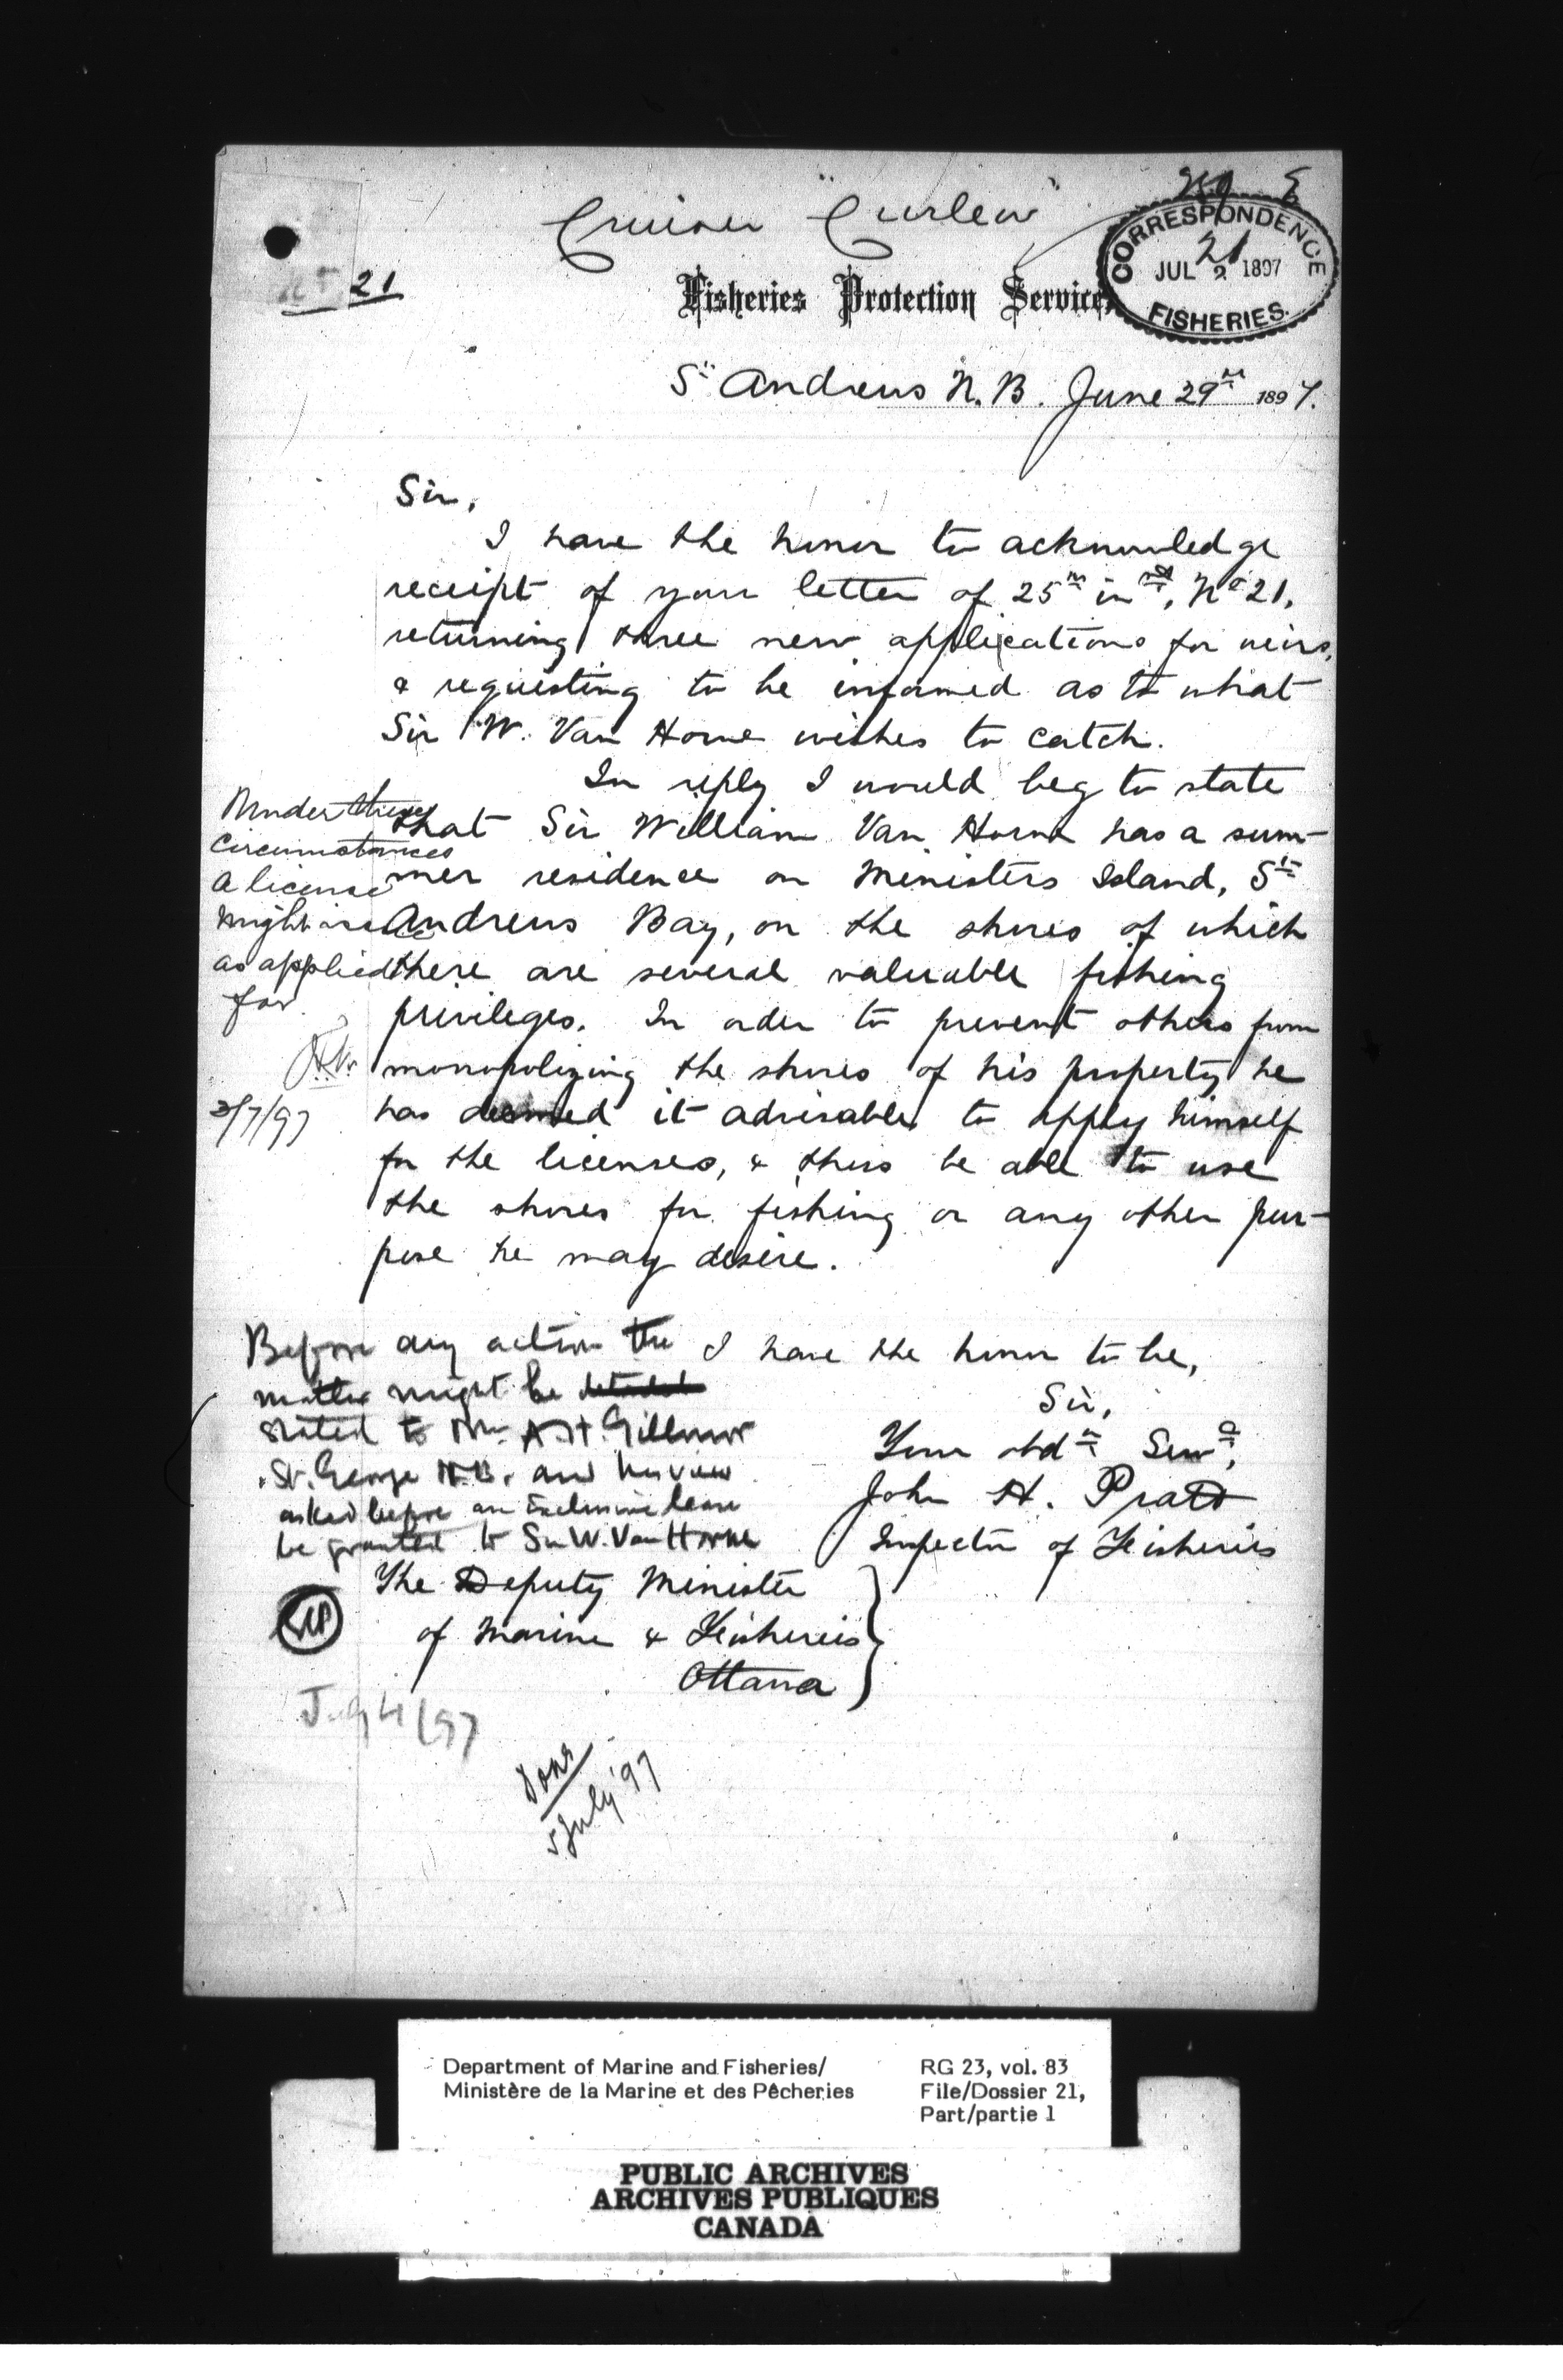 Cruiser "Curlew"
259 E
CORRESPONDENCE
21
JUL 2 1897
FISHERIES.
21
Fisheries Protection Service,
St Andrews N. B. June 29th 1897.
Sir,
I have the honor to acknowledge
receipt of your letter of 25th inst, No 21,
returning three new applications for weirs,
& requesting to be informed as to what
Sir W. Van Horne wishes to catch.
In reply I would beg to state
that Sir William Van Horne has a sum-
mer residence on Ministers Island, St
Andrews Bay, on the shores of which
there are several valuable fishing
privileges. In order to prevent others from
monopolizing the shores of his property he
has deemed it advisable to apply himself
for the licenses, & thus be able to use
the shores for fishing or any other pur-
pose he may desire.
Under these
circumstances
a license
might issue
as applied
for.
2/7/97
I have the honor to be,
Sir,
Your obdt Servt,
John H. Pratt
Inspector of Fisheries
Before any action the
matter might be
stated to Mr. A. H. Gillmor
St. George N.B. and his view
asked before an exclusive lease
be granted to Sir W. Van Horne
The Deputy Minister
of Marine & Fisheries
Ottawa
July 4/97
Done
5 July '97
Department of Marine and Fisheries/
Ministère de la Marine et des Pêcheries
RG 23, vol. 83
File/Dossier 21,
Part/partie 1
PUBLIC ARCHIVES
ARCHIVES PUBLIQUES
CANADA